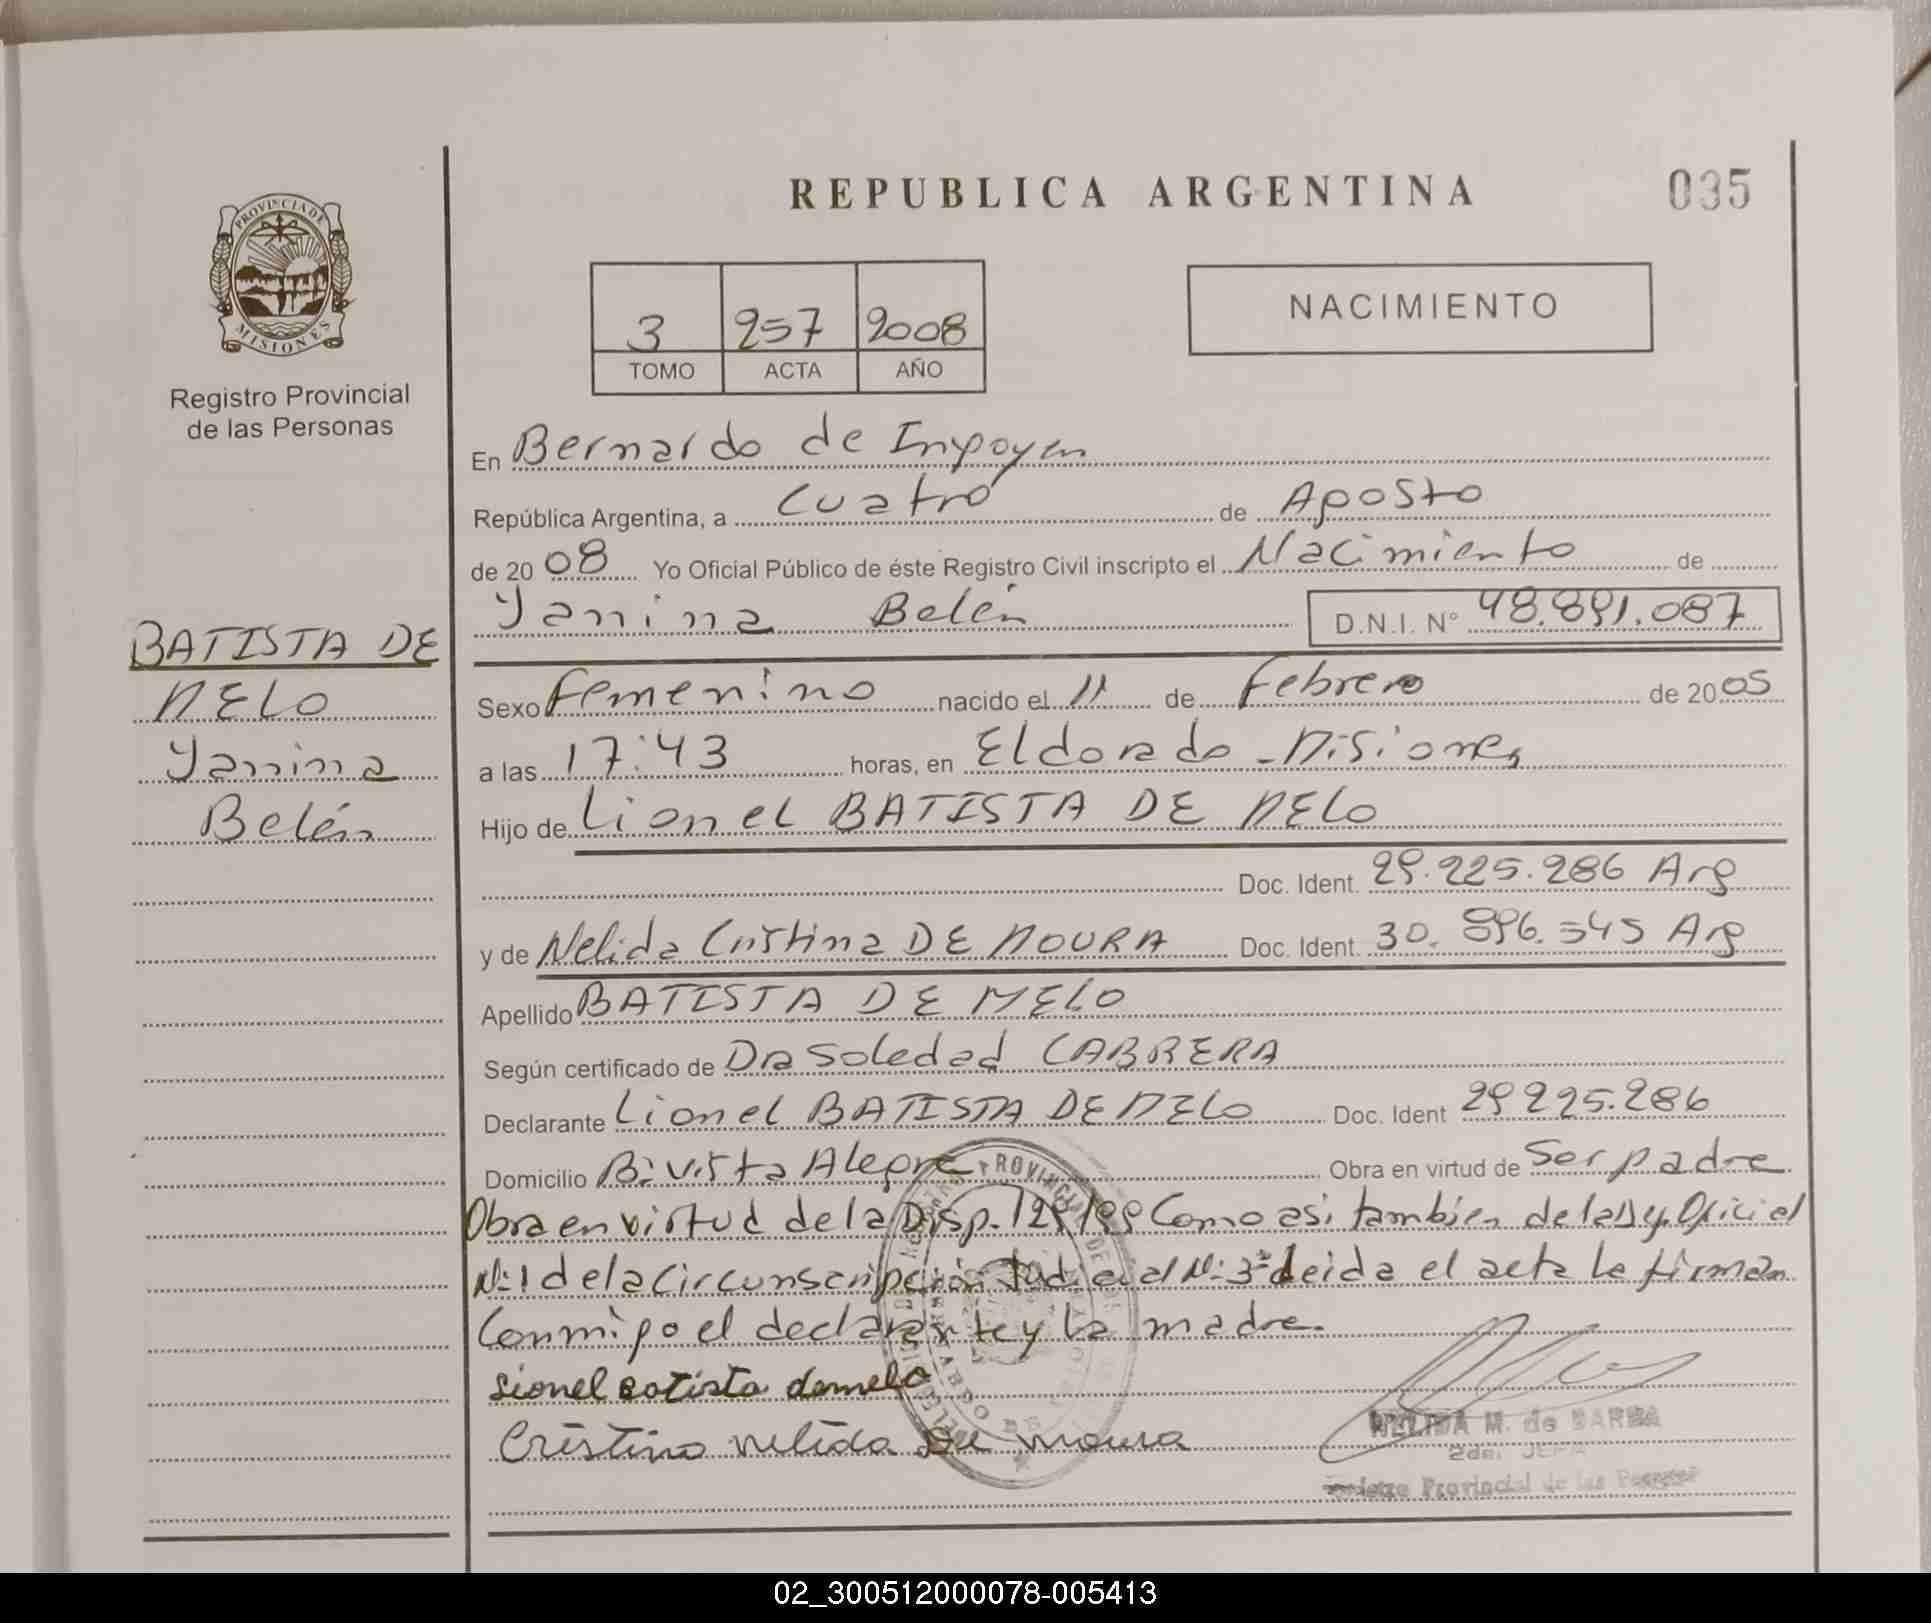 REPUBLICA ARGENTINA
035
PROVINCIA DE
MISIONES
Registro Provincial
de las Personas
3 257 2008
TOMO ACTA AÑO
NACIMIENTO
En Bernardo de Irigoyen
República Argentina, a cuatro de Agosto
de 20 08 Yo Oficial Público de éste Registro Civil inscripto el Nacimiento de
Yanina Belén D.N.I. N° 48.891.087
BATISTA DE
MELO
Yanina
Belén
Sexo Femenino nacido el 11 de Febrero de 20 05
a las 17:43 horas, en Eldorado - Misiones
Hijo de Lionel BATISTA DE MELO
Doc. Ident. 29.225.286 Arg
y de Nelida Cristina DE MOURA Doc. Ident. 30.896.545 Arg
Apellido BATISTA DE MELO
Según certificado de Dra Soledad CABRERA
Declarante Lionel BATISTA DE MELO Doc. Ident 29 225.286
Domicilio B: Vista Alegre Obra en virtud de Ser padre
Obra en virtud de la Disp. 129/99 Como asi tambien de la Oficial
N:1 de la Circunscripción Judicial N:3 leida el acta la firman
Conmigo el declarante y la madre.
Lionel Batista demelo
Cristina nelida De moura
NELIDA M. de BARBA
2da. JEFA
Registro Provincial de las Personas
02_300512000078-005413